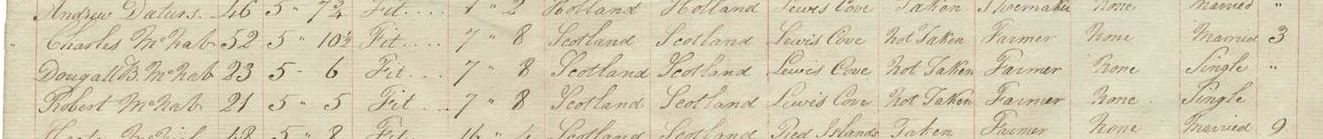 Andrew Daturs. 46 5 " 7¾ Fit.... 1 " 2 Holland Holland Lewis Cove Taken Shoemaker None Married "
Charles McNab 52 5 " 10½ Fit.... 7 " 8 Scotland Scotland Lewis Cove Not Taken Farmer None Married 3
Dougall B. McNab 23 5 - 6 Fit... 7 " 8 Scotland Scotland Lewis Cove Not Taken Farmer None Single "
Robert McNab 21 5 " 5 Fit... 7 " 8 Scotland Scotland Lewis Cove Not Taken Farmer None. Single
48 5 " 8 Fit 4 Scotland Scotland Red Islands Taken Farmer None Married 9